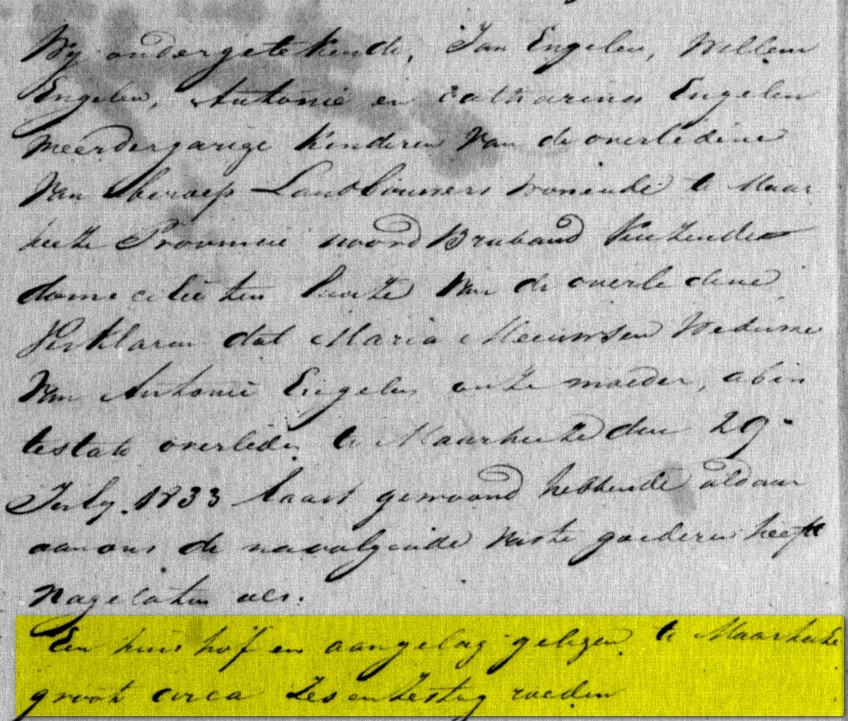 Wij ondergetekende, Jan Engelen, Willem
Engelen, Antonie en Catharina Engelen
meerderjarige kinderen van de overledene
van beroep Landbouwers wonende te Maar
heeze Provincie noord Braband kiezende
domicilie ten huize van de overledene
Verklaren dat Maria Meeuwsen Weduwe
van Antonie Engelen onze moeder, abin
testato overleden te Maarheeze den 29
July 1833 laast gewoond hebbende aldaar
aan ons de navolgende vaste goederen heeft
nagelaten als:
Een huis hof en aangelag gelegen te Maarheeze
groot circa zesenzestig roeden